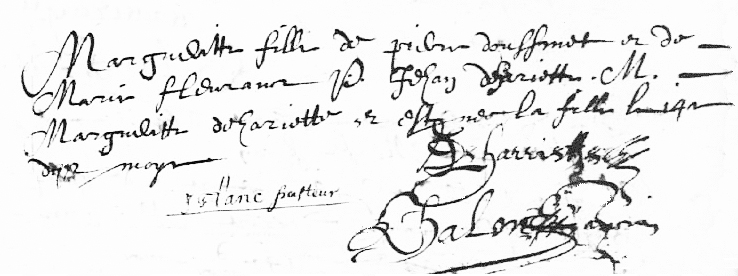 Margueritte fille de pierre doussinet et de
Marie fleurance p. Jehan deharriette. M.
Margueritte deharriette et est nee la fille le 14e
dud moys
Deharriette
Blanc pasteur
Chalon ancien